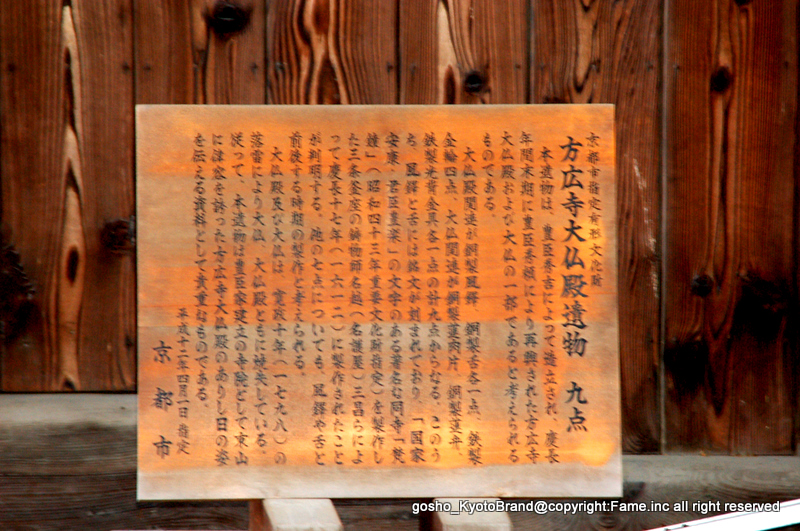 京都市指定有形文化財
方広寺大仏殿遺物 九点
本遺物は、豊臣秀吉によって造立され、慶長
年間末期に豊臣秀頼により再興された方広寺
大仏殿および大仏の一部であると考えられる
ものである。
大仏殿関連が銅製風鐸、銅製舌各一点、鉄製
金輪四点、大仏関連が銅製蓮肉片、銅製蓮弁、
鉄製光背金具各一点の計九点からなる。このう
ち、風鐸と舌には銘文が刻まれており、「国家
安康、君臣豊楽」の文字のある著名な同寺「梵
鐘」(昭和四十三年重要文化財指定)を製作し
た三条釜座の鋳物師名越(名護屋)三昌らによ
って慶長十七年(一六一二)に製作されたこと
が判明する。他の七点についても、風鐸や舌と
前後する時期の製作と考えられる。
大仏殿及び大仏は、寛政十年(一七九八)の
落雷により大仏、大仏殿ともに焼失している。
従って、本遺物は豊臣家建立の寺院として東山
に偉容を誇った方広寺大仏殿のありし日の姿
を伝える資料として貴重なものである。
平成十二年四月一日 指定
京都市
gosho_KyotoBrand@copyright:Fame.inc all right reserved